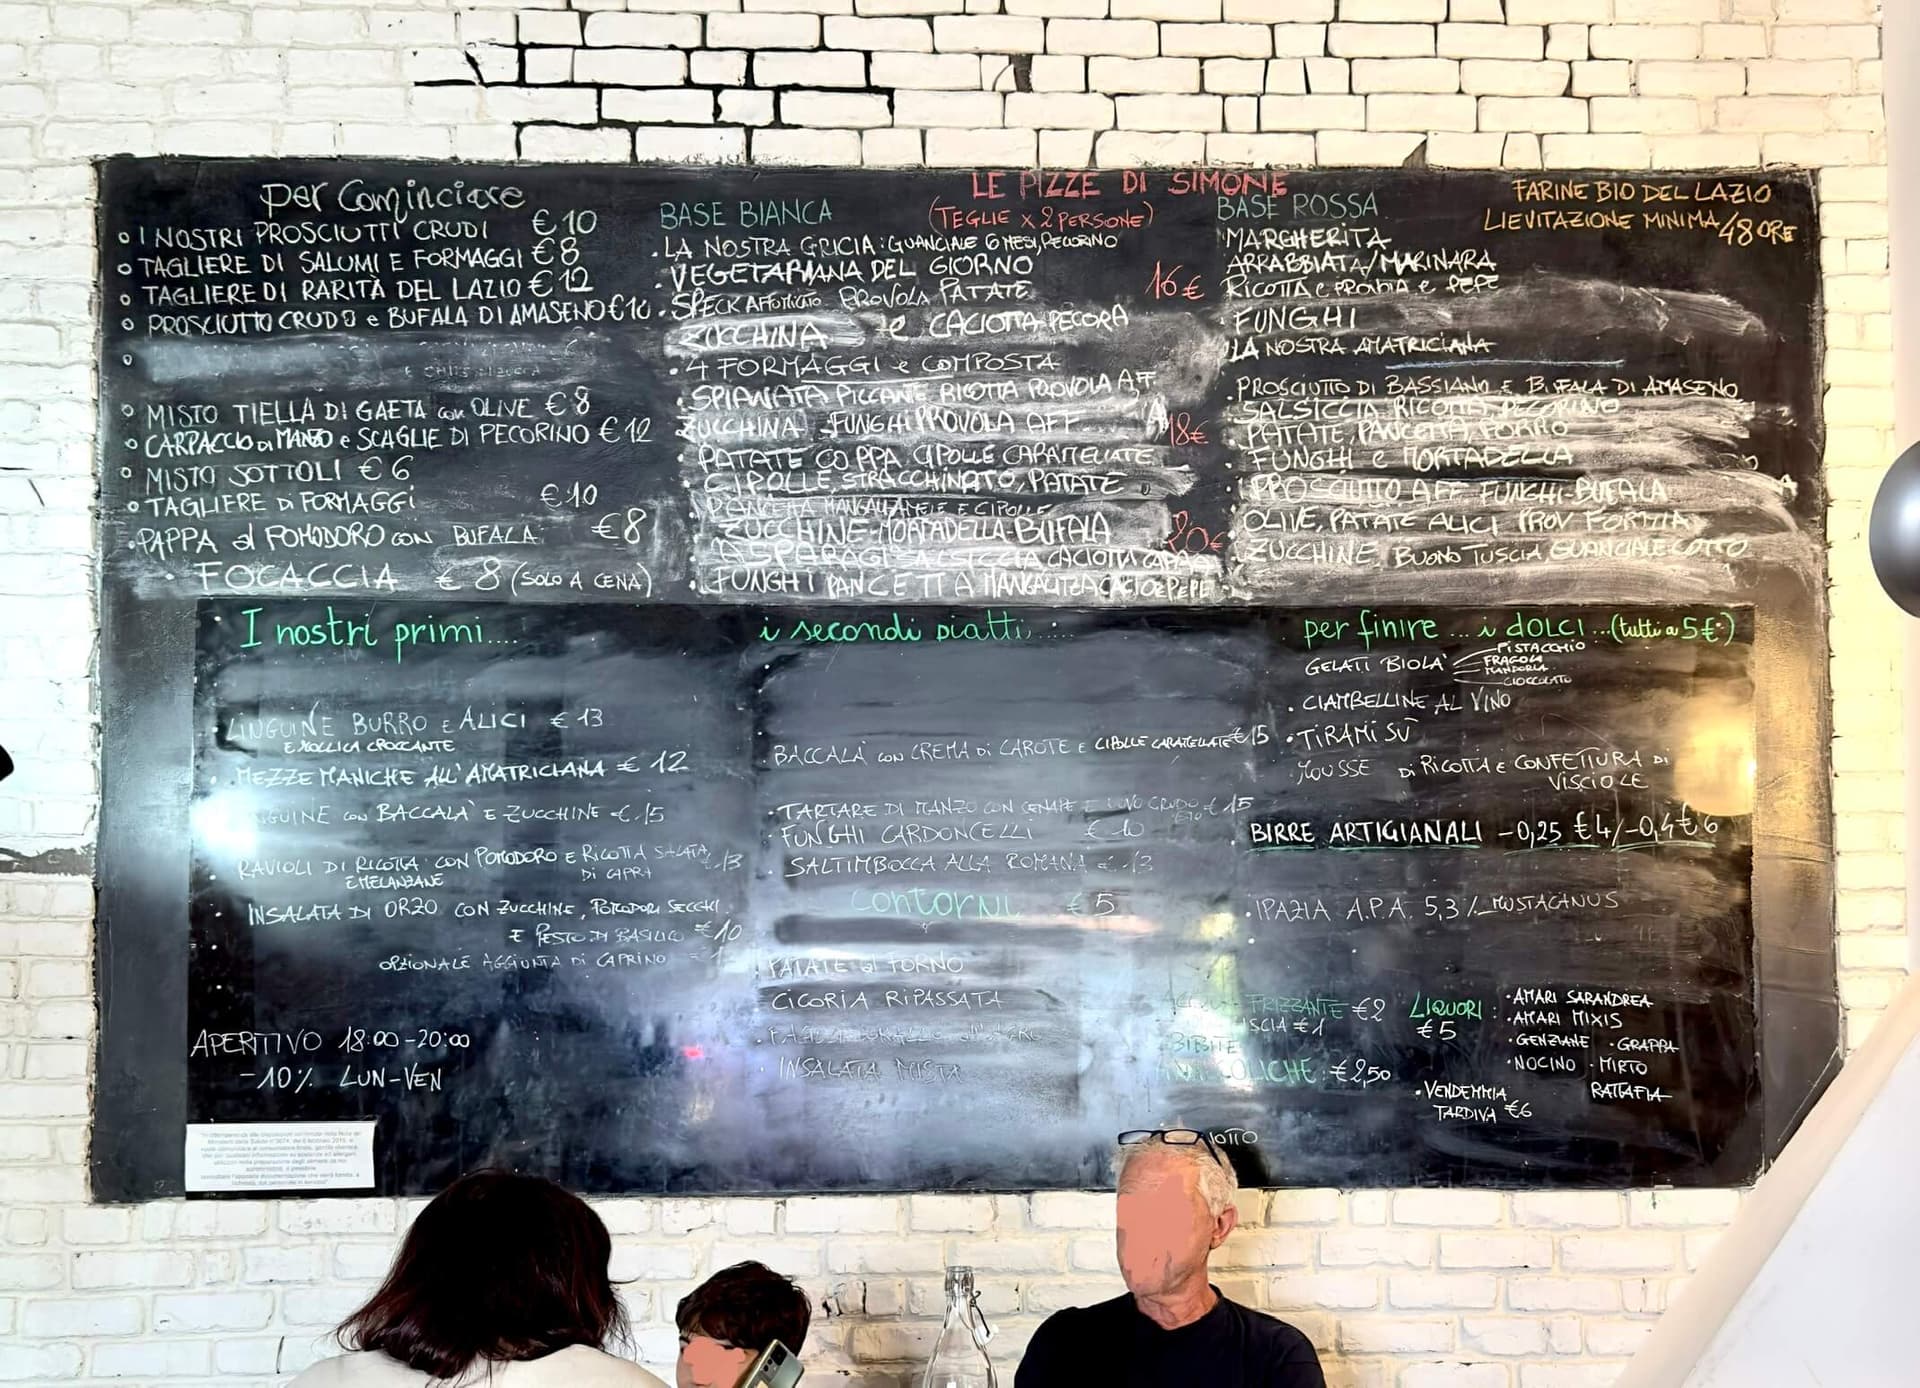 per Cominciare
I NOSTRI PROSCIUTTI CRUDI €10
TAGLIERE DI SALUMI E FORMAGGI €8
TAGLIERE DI RARITÀ DEL LAZIO €12
PROSCIUTTO CRUDO e BUFALA DI AMASENO €10
MISTO TIELLA DI GAETA con OLIVE €8
CARPACCIO DI MANZO e SCAGLIE DI PECORINO €12
MISTO SOTTOLI €6
TAGLIERE DI FORMAGGI €10
PAPPA al POMODORO CON BUFALA €8
FOCACCIA €8 (SOLO A CENA)
LE PIZZE DI SIMONE
(TEGLIE X 2 PERSONE)
BASE BIANCA
LA NOSTRA GRICIA: GUANCIALE 6 MESI, PECORINO
VEGETARIANA DEL GIORNO
SPECK AFFUMICATO PROVOLA PATATE
ZUCCHINA e CACIOTTA PECORA
4 FORMAGGI e COMPOSTA
SPIANATA PICCANTE RICOTTA PROVOLA AFF.
ZUCCHINA FUNGHI PROVOLA AFF.
PATATE COPPA CIPOLLE CARAMELLATE
CIPOLLE, STRACCHINATO, PATATE
PANCETTA MANGALITZA MELE E CIPOLLE
ZUCCHINE-MORTADELLA-BUFALA
ASPARAGI SALSICCIA CACIOTTA CAPRA
FUNGHI PANCETTA MANGALITZA CACIO e PEPE
16€
18€
20€
BASE ROSSA
MARGHERITA
ARRABBIATA/MARINARA
RICOTTA e e PEPE
FUNGHI
LA NOSTRA AMATRICIANA
PROSCIUTTO DI BASSIANO E BUFALA DI AMASENO
SALSICCIA, RICOTTA, PECORINO
PATATE, PANCETTA, PORRO
FUNGHI e MORTADELLA
PROSCIUTTO AFF. FUNGHI-BUFALA
OLIVE, PATATE ALICI PROV
ZUCCHINE, BUONO TUSCIA, GUANCIALE COTTO
FARINE BIO DEL LAZIO
LIEVITAZIONE MINIMA 48 ORE
I nostri primi....
LINGUINE BURRO E ALICI €13
E MOLLICA CROCCANTE
MEZZE MANICHE ALL'AMATRICIANA €12
LINGUINE con BACCALA' E ZUCCHINE €15
RAVIOLI DI RICOTTA CON POMODORO E RICOTTA SALATA €13
E MELANZANE DI CAPRA
INSALATA DI ORZO CON ZUCCHINE, POMODORI SECCHI
E PESTO DI BASILICO €10
OPZIONALE AGGIUNTA DI CAPRINO
APERITIVO 18:00-20:00
-10% LUN-VEN
i secondi piatti......
BACCALA con CREMA DI CAROTE E CIPOLLE CARAMELLATE €15
TARTARE DI MANZO CON SENAPE E UOVO CRUDO €15
FUNGHI CARDONCELLI €10
SALTIMBOCCA ALLA ROMANA €13
contorni €5
PATATE al FORNO
CICORIA RIPASSATA
INSALATA MISTA
per finire ... i DOLCI ...(tutti a 5€)
GELATI BIOLA'
PISTACCHIO
FRAGOLA
MANDORLA
CIOCCOLATO
CIAMBELLINE AL VINO
TIRAMISÙ
MOUSSE DI RICOTTA E CONFETTURA DI
VISCIOLE
BIRRE ARTIGIANALI -0,25 €4/-0,4 €6
IPAZIA A.P.A. 5,3% MUSTACANUS
FRIZZANTE €2
LISCIA €1
BIBITE
ANALCOLICHE: €2,50
LIQUORI:
€5
AMARI SARANDREA
AMARI MIXIS
GENZIANE · GRAPPA
NOCINO · MIRTO
RATAFIA
VENDEMMIA
TARDIVA €6